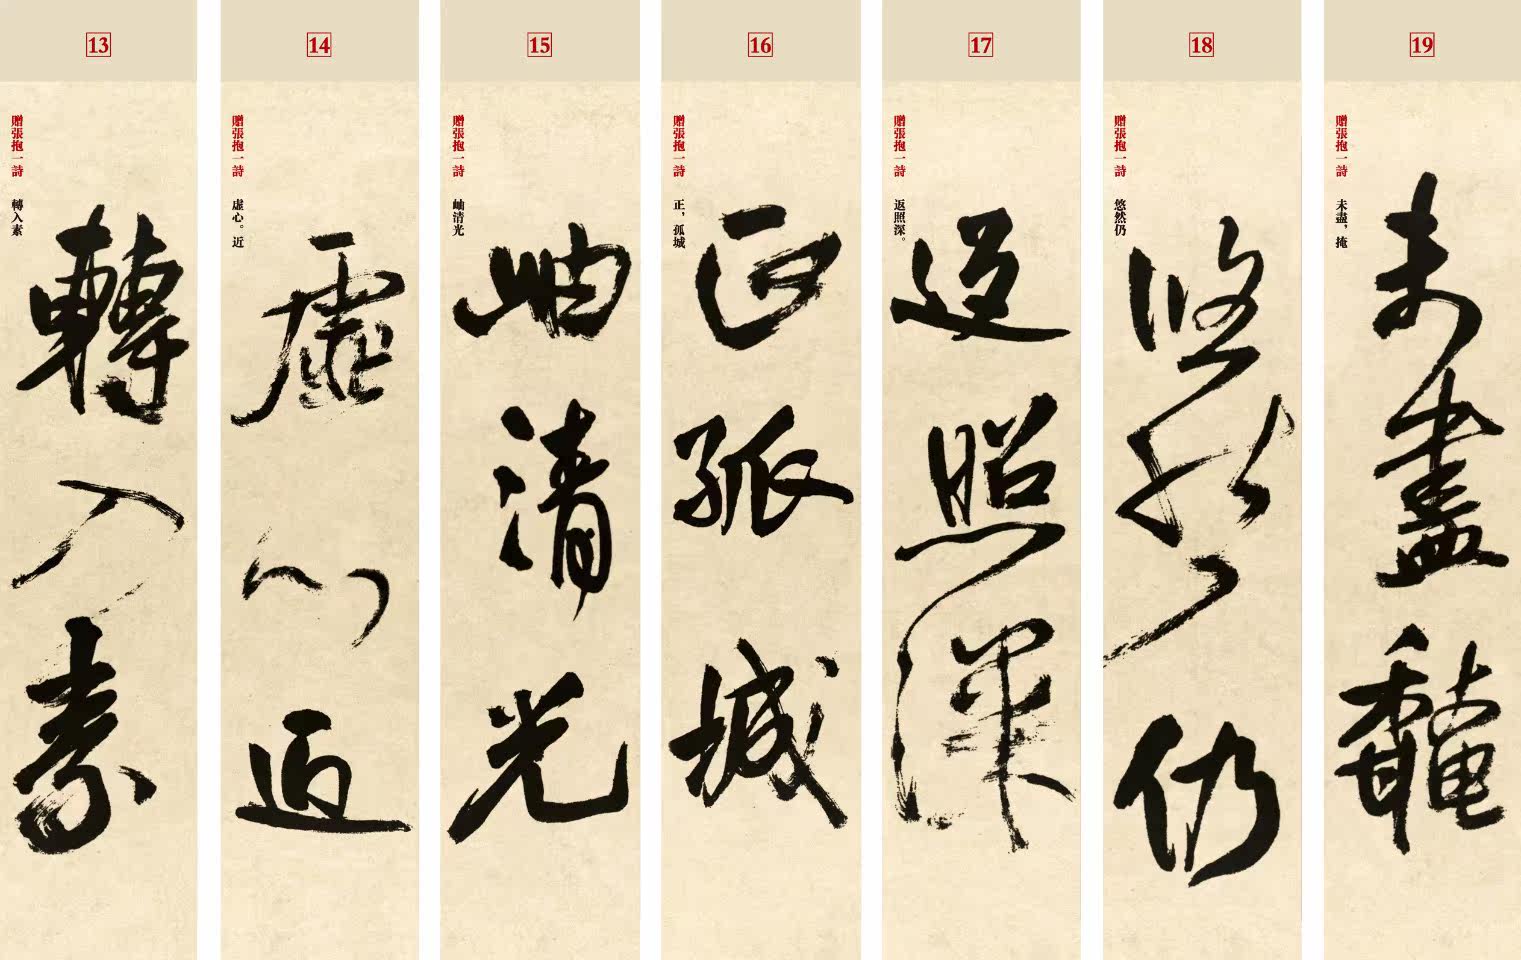 13
贈張抱一詩 轉入素
轉入素
14
贈張抱一詩 虛心。近
虛心近
15
贈張抱一詩 岫清光
岫清光
16
贈張抱一詩 正,孤城
正孤城
17
贈張抱一詩 返照深。
返照深
18
贈張抱一詩 悠然仍
悠然仍
19
贈張抱一詩 未盡,掩
未盡